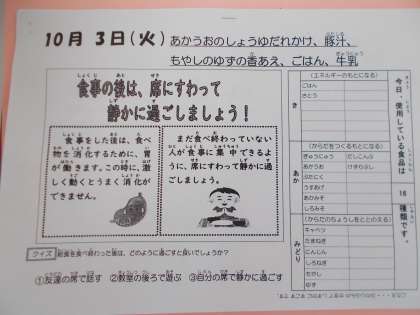 10月 3日(火) あかうおのしょうゆだれかけ、豚汁、
もやしのゆずの香あえ、ごはん、牛乳
食事の後は、席にすわって
静かに過ごしましょう!
食事をした後は、食べ
物を消化するために、胃
が働きます。この時に、激
しく動くとうまく消化が
できません。
まだ食べ終わっていない
人が食事に集中できるよ
うに、席にすわって静かに過
ごしましょう。
クイズ 給食を食べ終わった後は、どのように過ごすと良いでしょうか?
①友達の席で話す ②教室の後ろで遊ぶ ③自分の席で静かに過ごす
今日、使用している食品は
16
種類です。
き
(エネルギーのもとになる)
ごはん
さとう
あか
(からだをつくるもとになる)
ぎゅうにゅう
あかうお
ぶたにく
うすあげ
あかみそ
しろみそ
みどり
(からだのちょうしをととのえる)
キャベツ
たまねぎ
にんじん
しろねぎ
もやし
ゆず